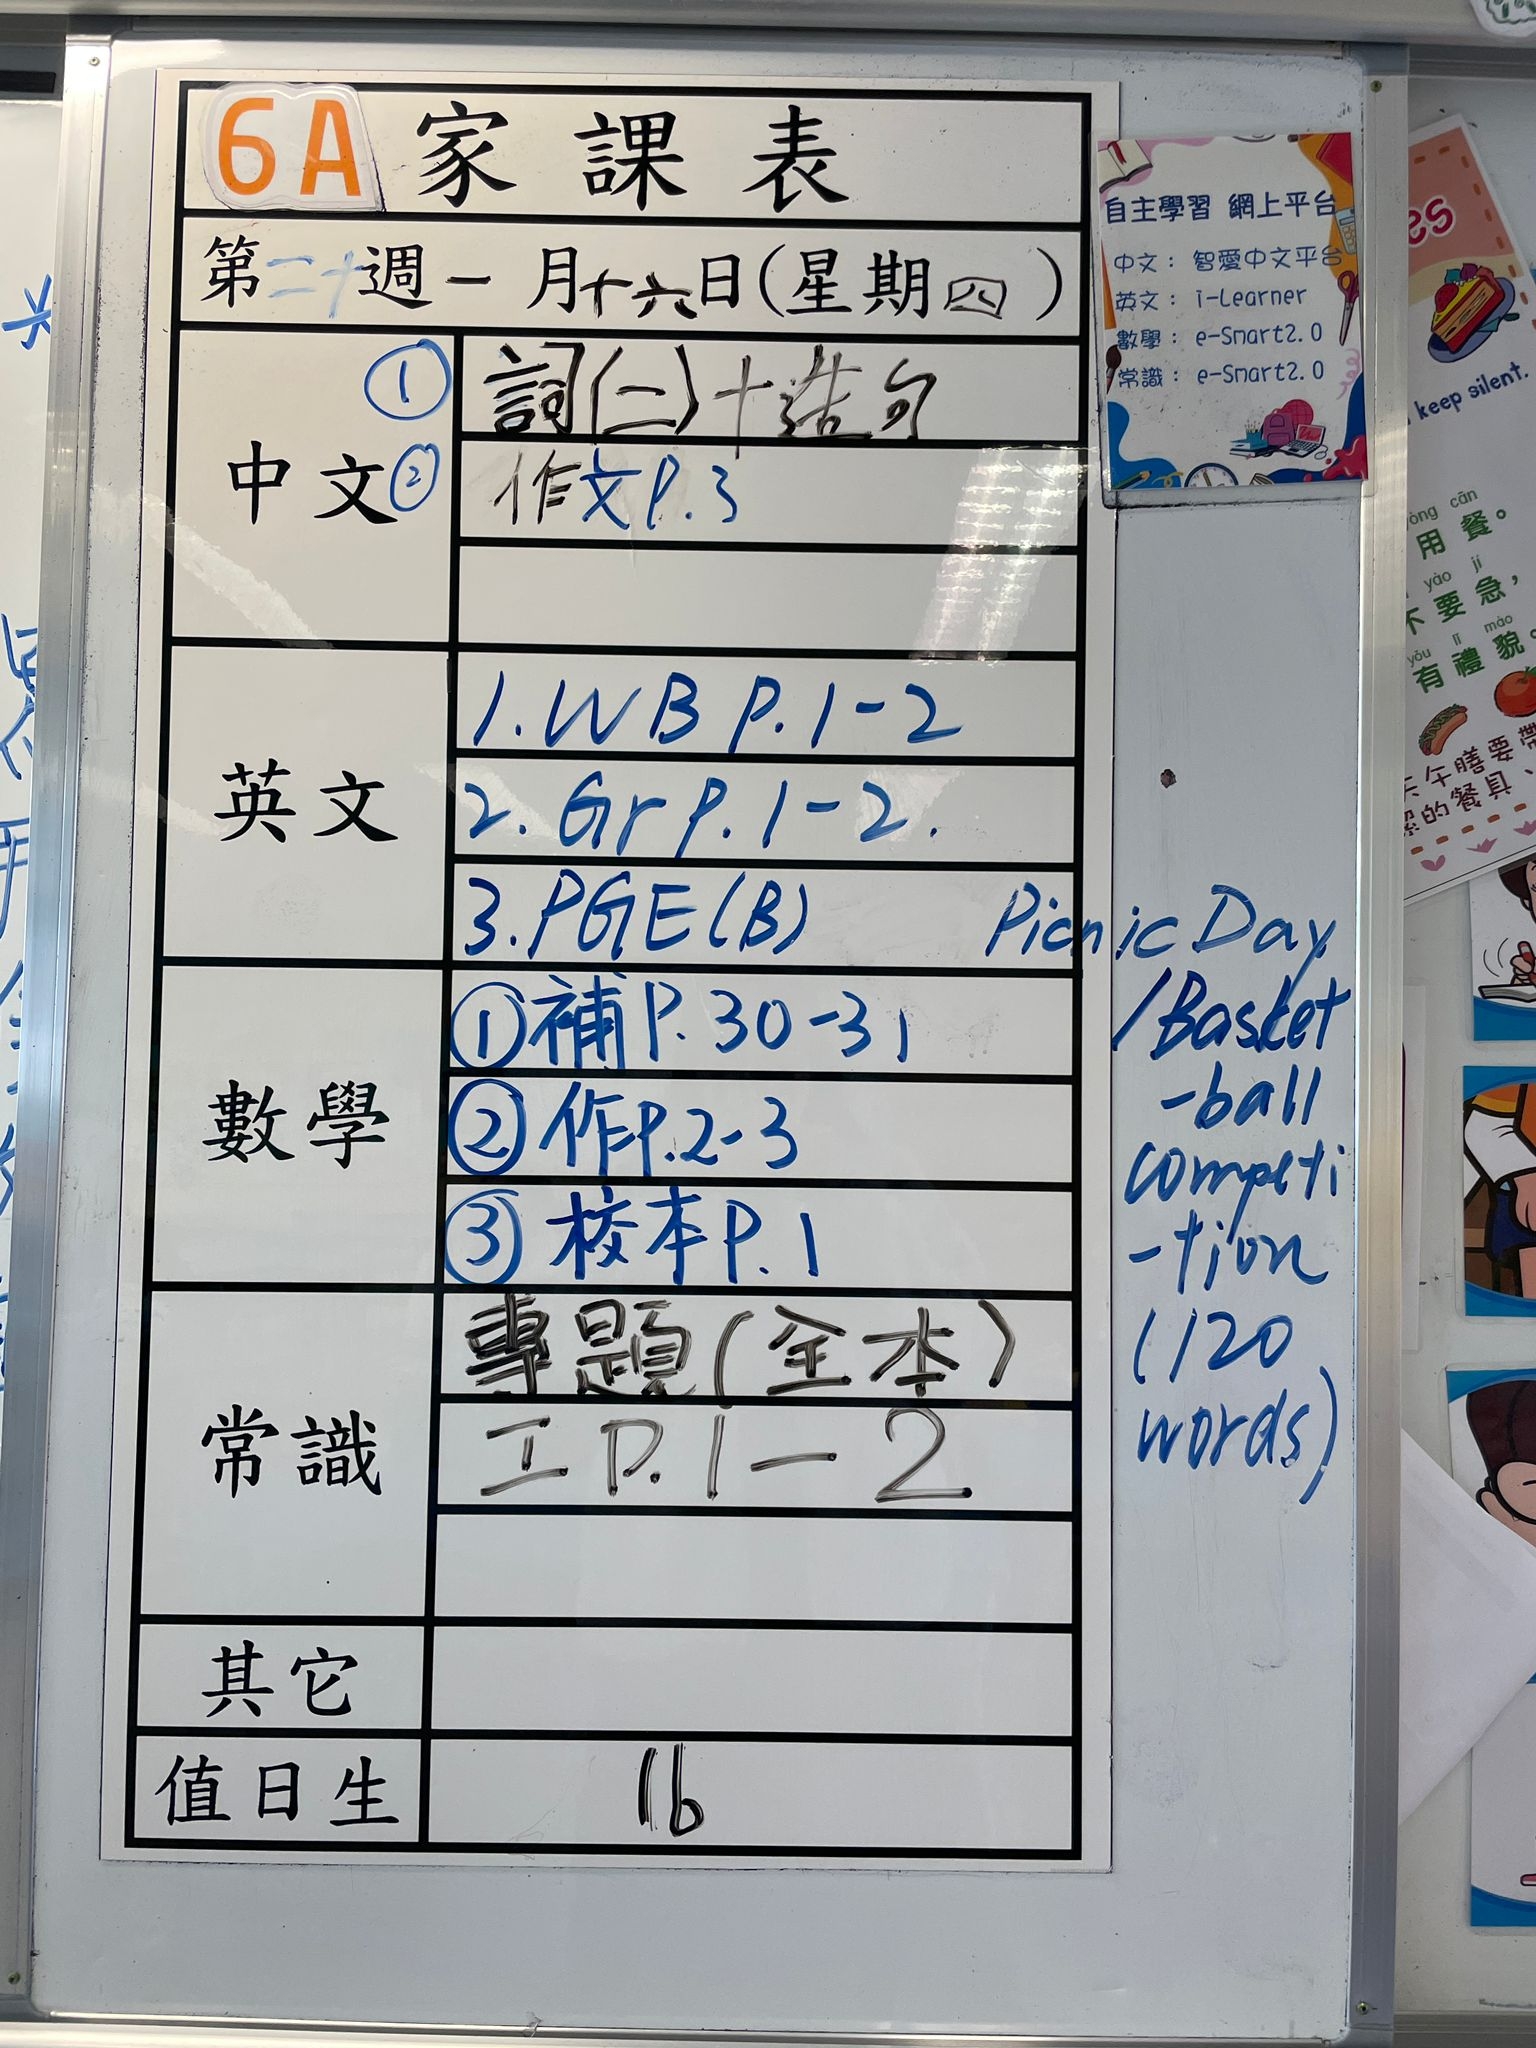 6A 家課表
第二十週一月十六日(星期四)
中文
① 詞(二)+造句
② 作文P.3
英文
1. WB P.1-2
2. Gr P.1-2.
3. PGE(B) Picnic Day
/Basket
-ball
competi
-tion
(120
words)
數學
① 補P.30-31
② 作P.2-3
③ 校本P.1
常識
專題(全本)
工P.1-2
其它
值日生 16
自主學習 網上平台
中文： 智愛中文平台
英文： i-Learner
數學： e-Smart2.0
常識： e-Smart2.0
es
keep silent.
cān
用餐。
yào jí
不要急，
yǒu lǐ mào
有禮貌。
午膳要帶
潔的餐具、